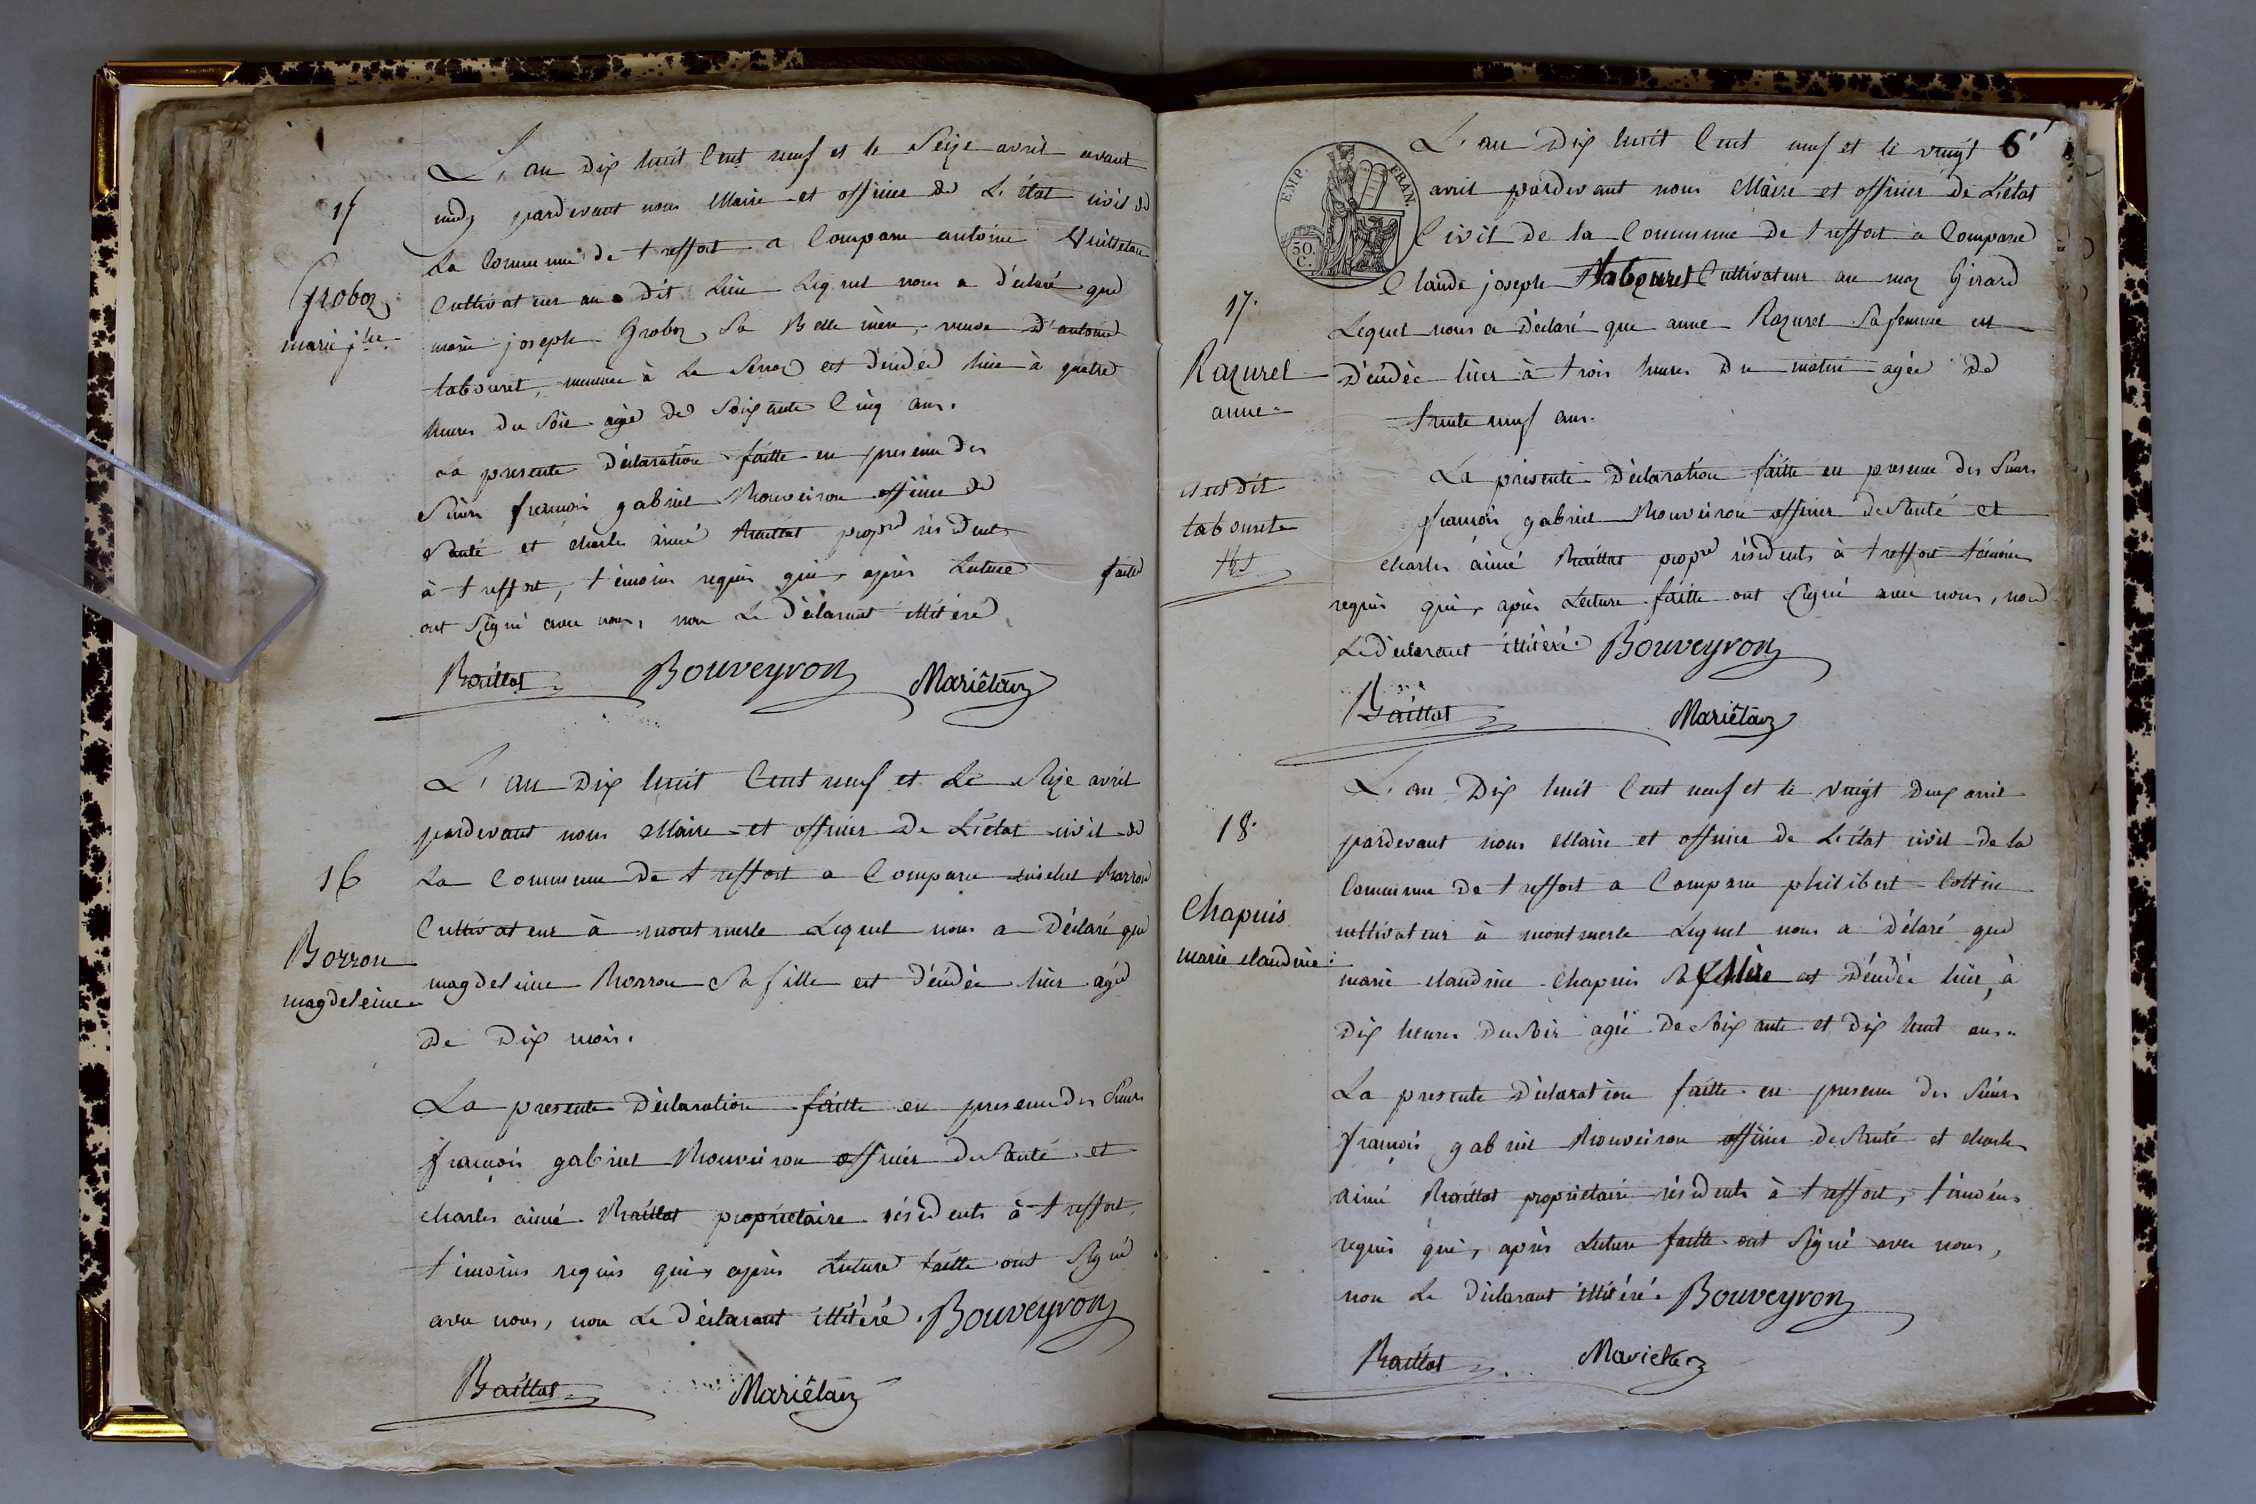 L'an Dix huit Cent neuf et le Seize avril avant
midy pardevant nous Maire et officier de L'état civil de
La Commune de treffort a Comparu antoine
Cultivateur au dit Lieu Lequel nous a déclaré que
marie joseph Groboz Sa Belle mère, veuve D'antoine
tabouret, est décédée hier à quatre
heures du Soir agée de Soixante Cinq ans.
La presente Déclaration faitte en presence des
Sieurs françois gabriel Bouveiron officier de
Santé et charles aimé Baillat prop.re résidents
à treffort, témoins requis qui, après Lecture faitte
ont Signé avec nous, non Le Déclarant illitéré
Baillat Bouveyron Mariétan
15
Groboz
marie j.he
L'an Dix huit Cent neuf et Le Seize avril
pardevant nous Maire et officier De L'état civil de
La Commune De treffort a Comparu Borron
Cultivateur à montmerle Lequel nous a Déclaré que
magdeleine Borron Sa fille est décédée hier agée
de Dix mois.
La presente Déclaration faitte en presence des Sieurs
françois gabriel Bouveiron officier de Santé et
charles aimé Baillat proprietaire résidents à treffort,
témoins requis qui, après Lecture faitte ont Signé
avec nous, non Le Déclarant illitéré. Bouveyron
Baillat Mariétan
16
Borron
magdeleine
6
EMP. FRAN.
50 C.
L'an Dix huit Cent neuf et le vingt
avril pardevant nous Maire et officier de L'état
Civil de la Commune De treffort a Comparu
Claude joseph tabouret Cultivateur au maz Girard
Lequel nous a déclaré que anne Razurel Sa femme est
Décédée hier à trois heures Du matin agée De
trente neuf ans.
La présente Déclaration faitte en presence des Sieurs
françois gabriel Bouveiron officier de Santé et
charles aimé Baillat prop.re résidents à treffort témoins
requis qui, après Lecture faitte ont Signé avec nous, non
Le déclarant illitéré. Bouveyron
Baillat Mariétan
17.
Razurel
anne
tabouret
L'an Dix huit Cent neuf et le vingt deux avril
pardevant nous Maire et officier de L'état civil de la
Commune De treffort a Comparu philibert Cottin
cultivateur à montmerle Lequel nous a Déclaré que
marie claudine Chapuis Sa Mère est Décédée hier, à
Dix heures Du Soir agée De Soixante et Dix huit ans.
La presente Déclaration faitte en presence des Sieurs
françois gabriel Bouveiron officier de Santé et charles
aimé Baillat proprietaire résidents à treffort, témoins
requis qui, après Lecture faitte ont Signé avec nous,
non Le Déclarant illitéré. Bouveyron
Baillat Mariétan
18.
Chapuis
marie claudine